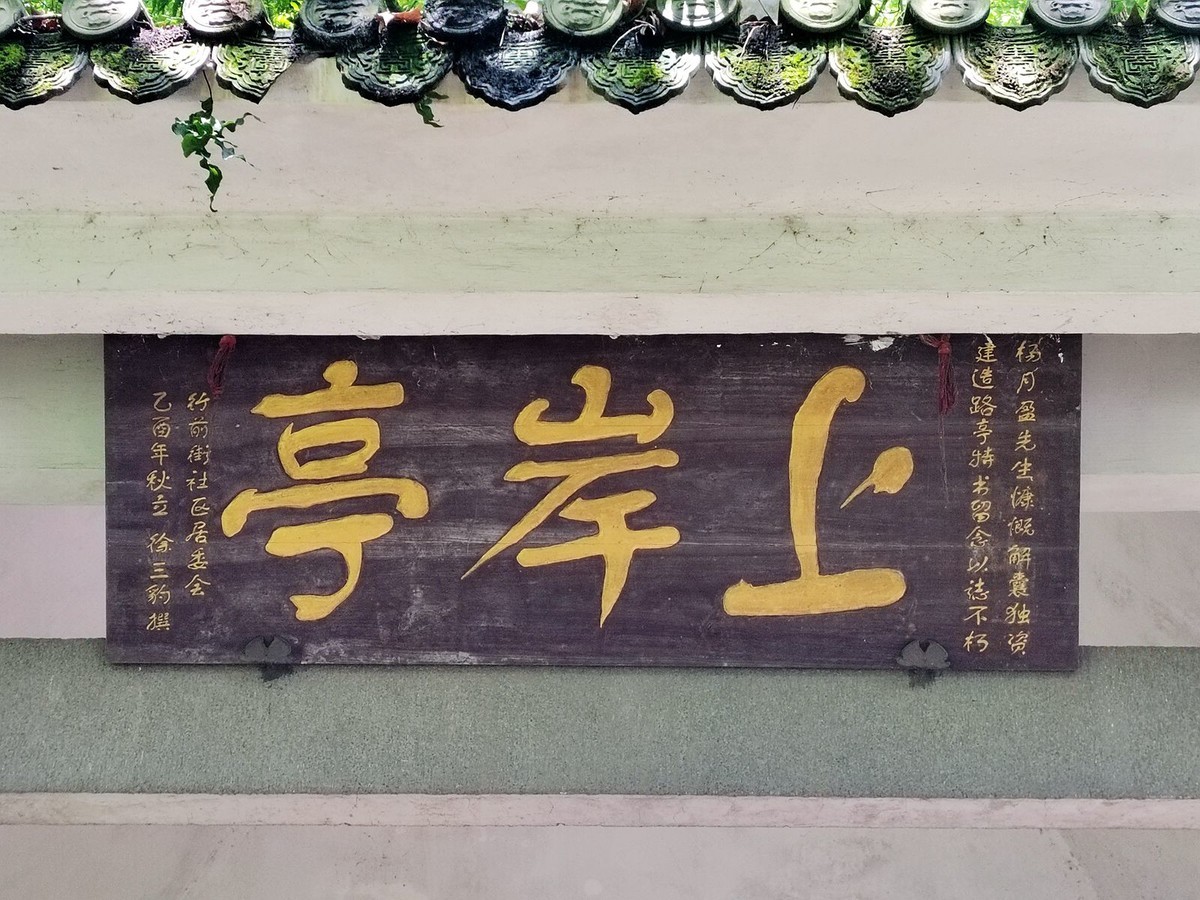 杨月盈先生慷慨解囊独资
建造路亭特书留念以志不朽
上岸亭
行前街社区居委会
乙酉年秋立 徐三豹撰